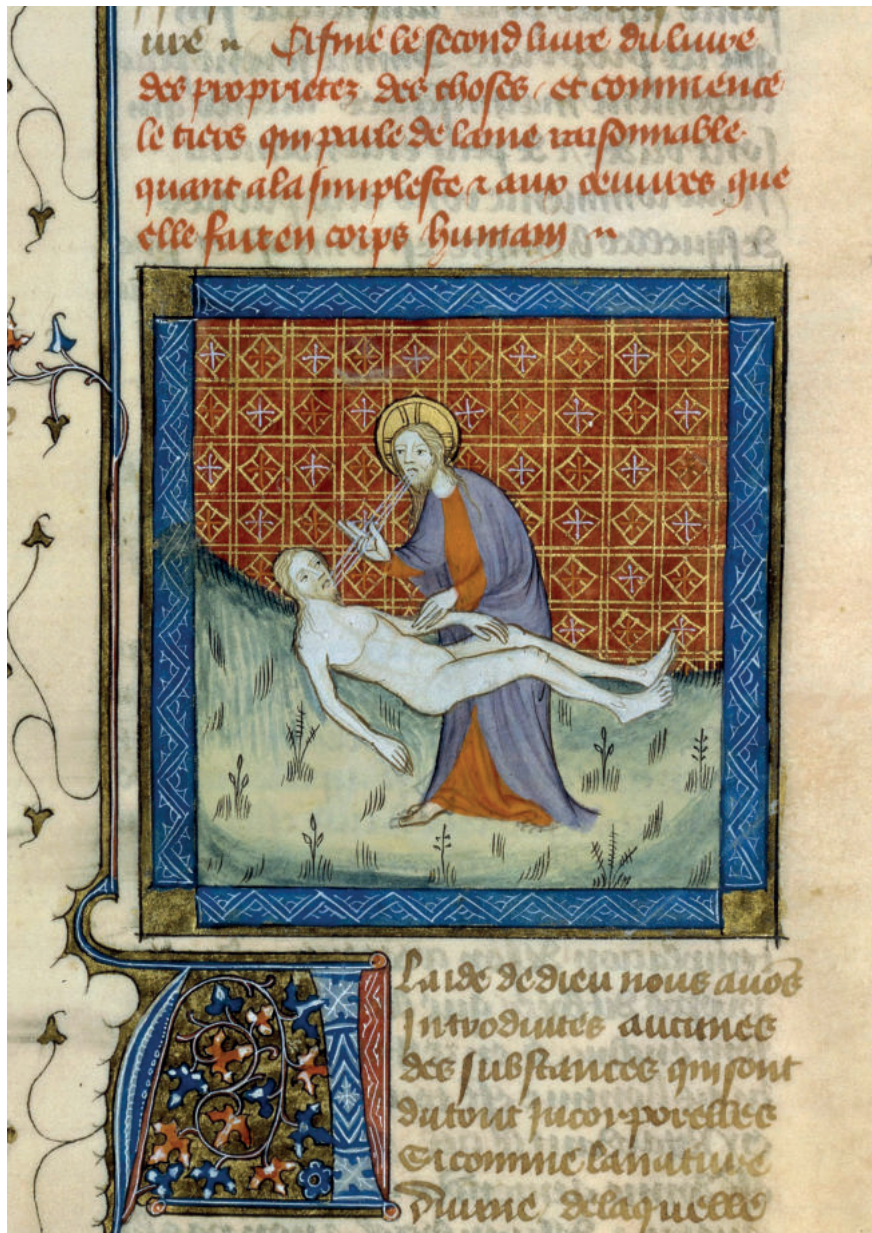 ure
Cy fine le second livre du livre
des proprietez des choses, et commence
le tiers qui parle de lame raisonnable
quant a la simplesce & aux oeuvres que
elle fait en corps humain
A laide de dieu nous avōs
Introduites aucunes
des substances qui sont
du tout Incorporelles
Si comme la nature
divine, de laquelle